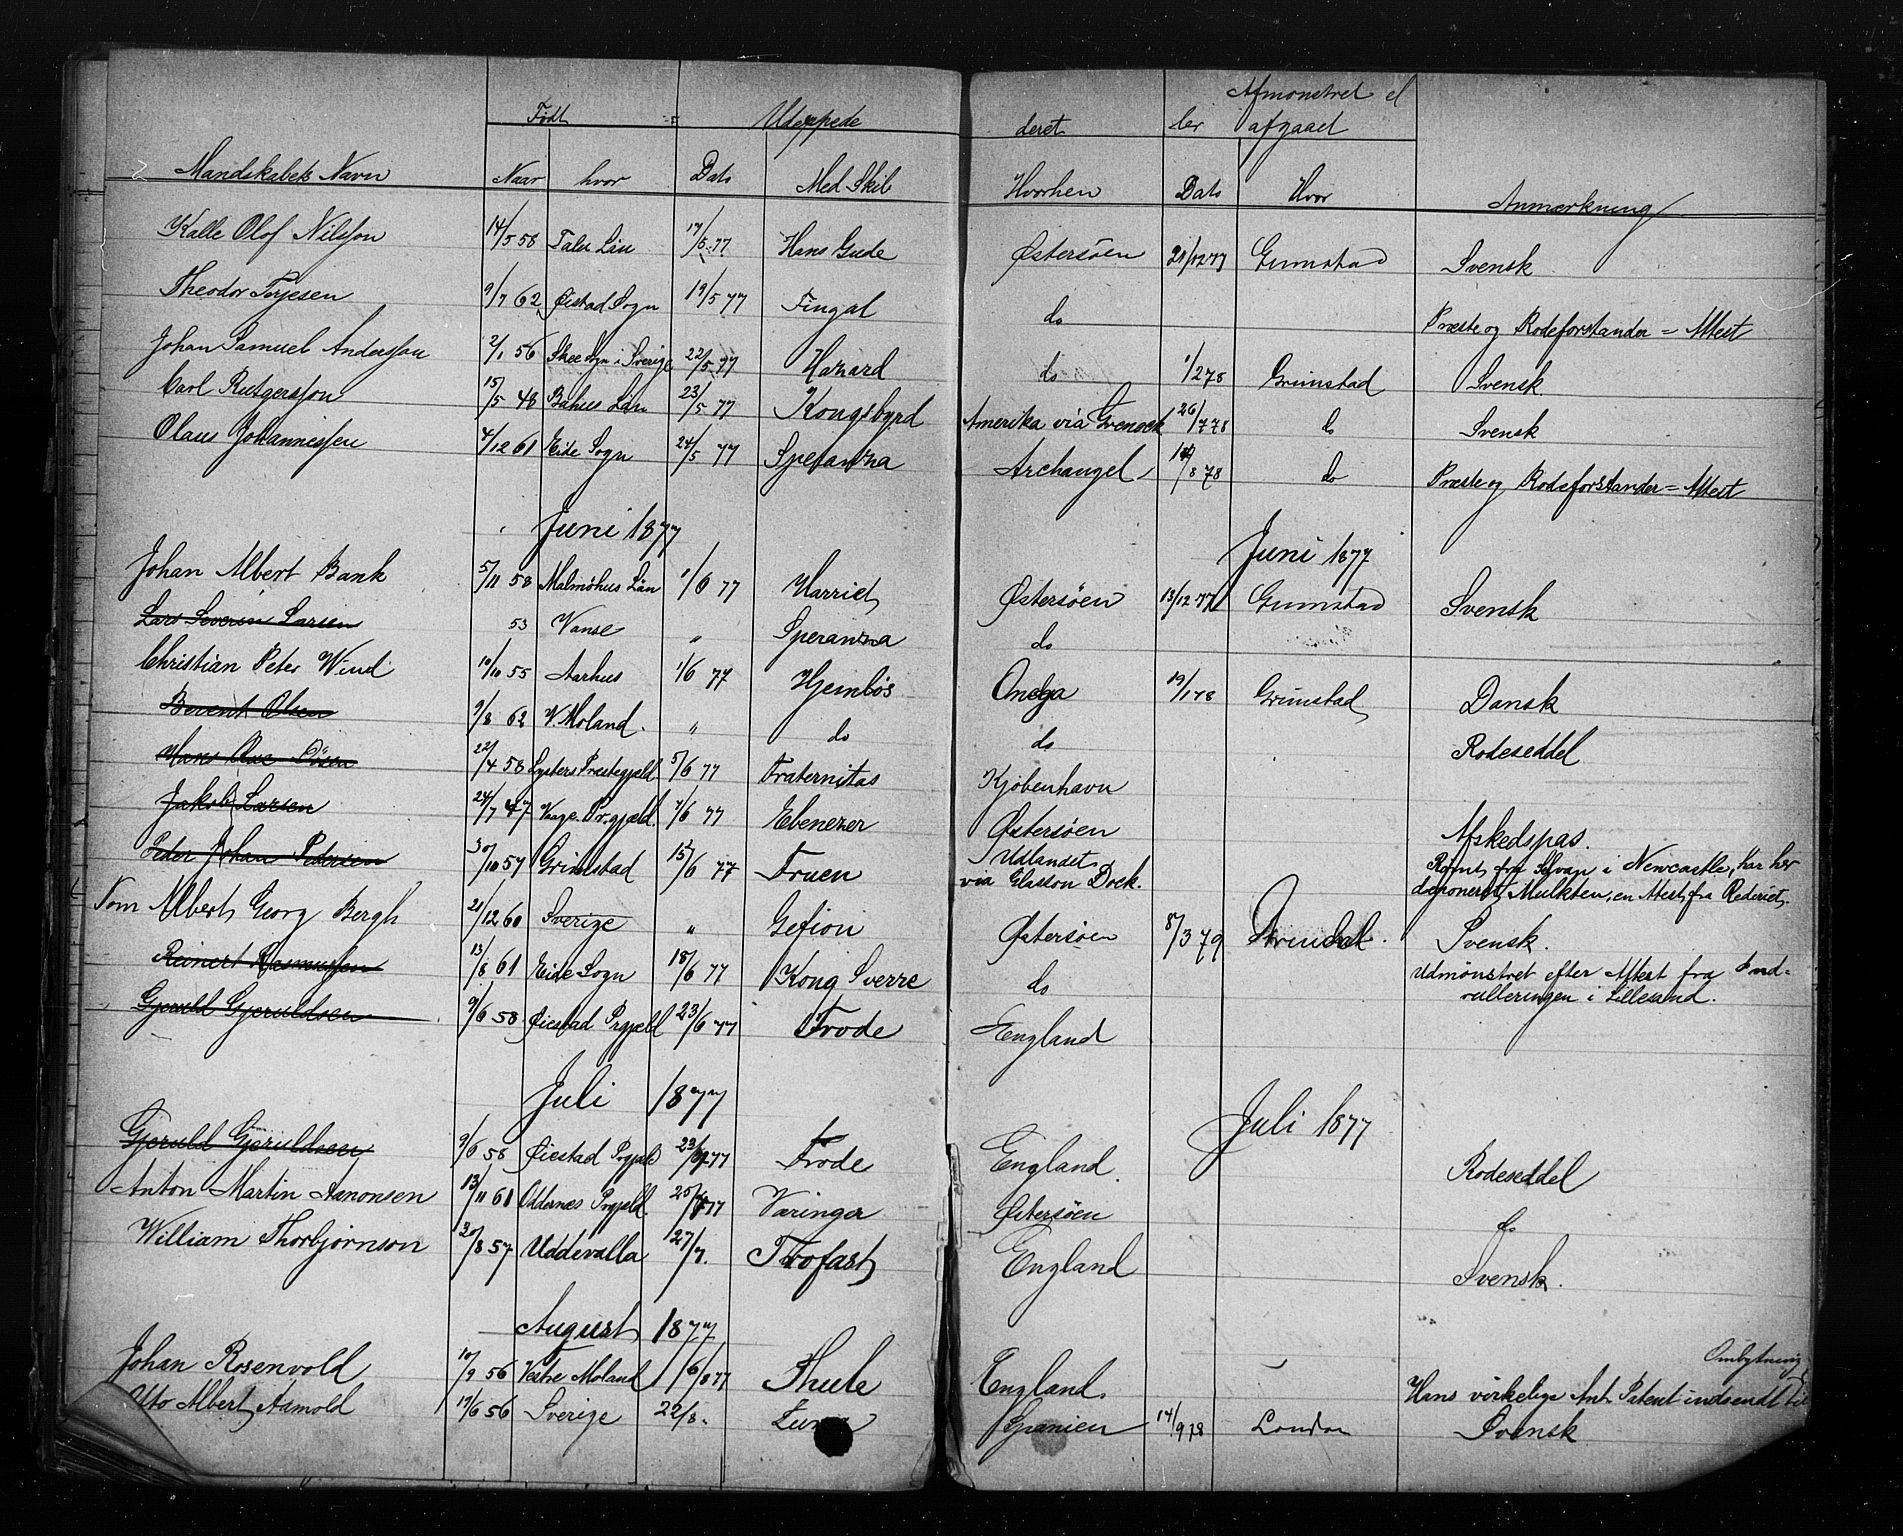 Født Udeppede deret Afmønstret el
ler afgaaet
Mandskabets Navn Naar hvor Dato Med Skib Hvorhen Dato Hvor Anmærkning
Kalle Olof Nilsson 14/5 58 Län 17/5 77 Hans Gude Østersøen 21/12 77 Grimstad Svensk
Theodor Terjesen 9/7 62 Øiestad Sogn 19/5 77 Fingal do Præste og Rodeforstander = Attest
Johan Samuel Andersson 2/1 56 Skee Sogn i Sverige 22/5 77 Hazard do 1/2 78 Grimstad Svensk.
Carl Rutgersson 15/5 48 Bahus Län 23/5 77 Kongsbyrd Amerika via 26/7 78 do Svensk
Olaus Johannissen 4/12 61 Eide Sogn 24/5 77 Speranza Archangel 8 78 do Præste og Rodeforstander = Attest
Juni 1877 Juni 1877
Johan Albert Bank 5/11 58 Malmöhus Län 1/6 77 Harriet Østersøen 13/12 77 Grimstad Svensk
Lars Severin Larsen 53 Vanse " Speranza do
Christian Peter Wind 10/10 55 Aarhus 1/6 77 Hjemløs Onega 19/1 78 Grimstad Dansk
Berent Olsen 9/8 62 V. Moland. " do do Rodeseddel
Hans 22/4 58 Lysters Præstegjeld 5/6 77 Fraternitas Kjøbenhavn
Jakob Larsen 24/7 47 Vaage Pr.gjæld. 7/6 77 Ebenezer Østersøen Afskedspas.
Peder Johan Pedersen 30/10 57 Grimstad 15/6 77 Fruen Udlandet
via Glasson Dock. Rømt fra i Newcastle, har her
deponeret Mulkten, en Attest fra Rederiet.
Tom Albert Georg Bergh 21/12 60 Sverige " Gefion Østersøen 8/3 79 Arendal. Svensk.
Reinert Rasmussen 13/8 61 Eide Sogn 18/6 77 Kong Sverre do Udmønstret efter Attest fra Ind-
rulleringen i Lillesand.
Gjeruld Gjeruldsen 9/6 58 Øiestad Prgjeld 23/6 77 Frode England
Juli 1877 Juli 1877
Gjeruld Gjeruldsen 9/6 58 Øiestad Prgjeld 23/ 77 Frode England. Rodeseddel
Anton Martin Aanonsen 13/11 61 Oddernes Prgjeld. 25/ 77 Væringer Østersøen do
William Thorbjørnson 30/8 57 Uddevalla 27/7. Trofast England Svensk.
August 1877
Johan Rosenvold 10/9 56 Vestre Moland 16/8 77 Thule England. Ombytning
Hans virkelige Ant. Patent indsendt til
Otto Albert Aamold 17/6 56 Sverige 22/8. Spanien 14/9 78 London Svensk